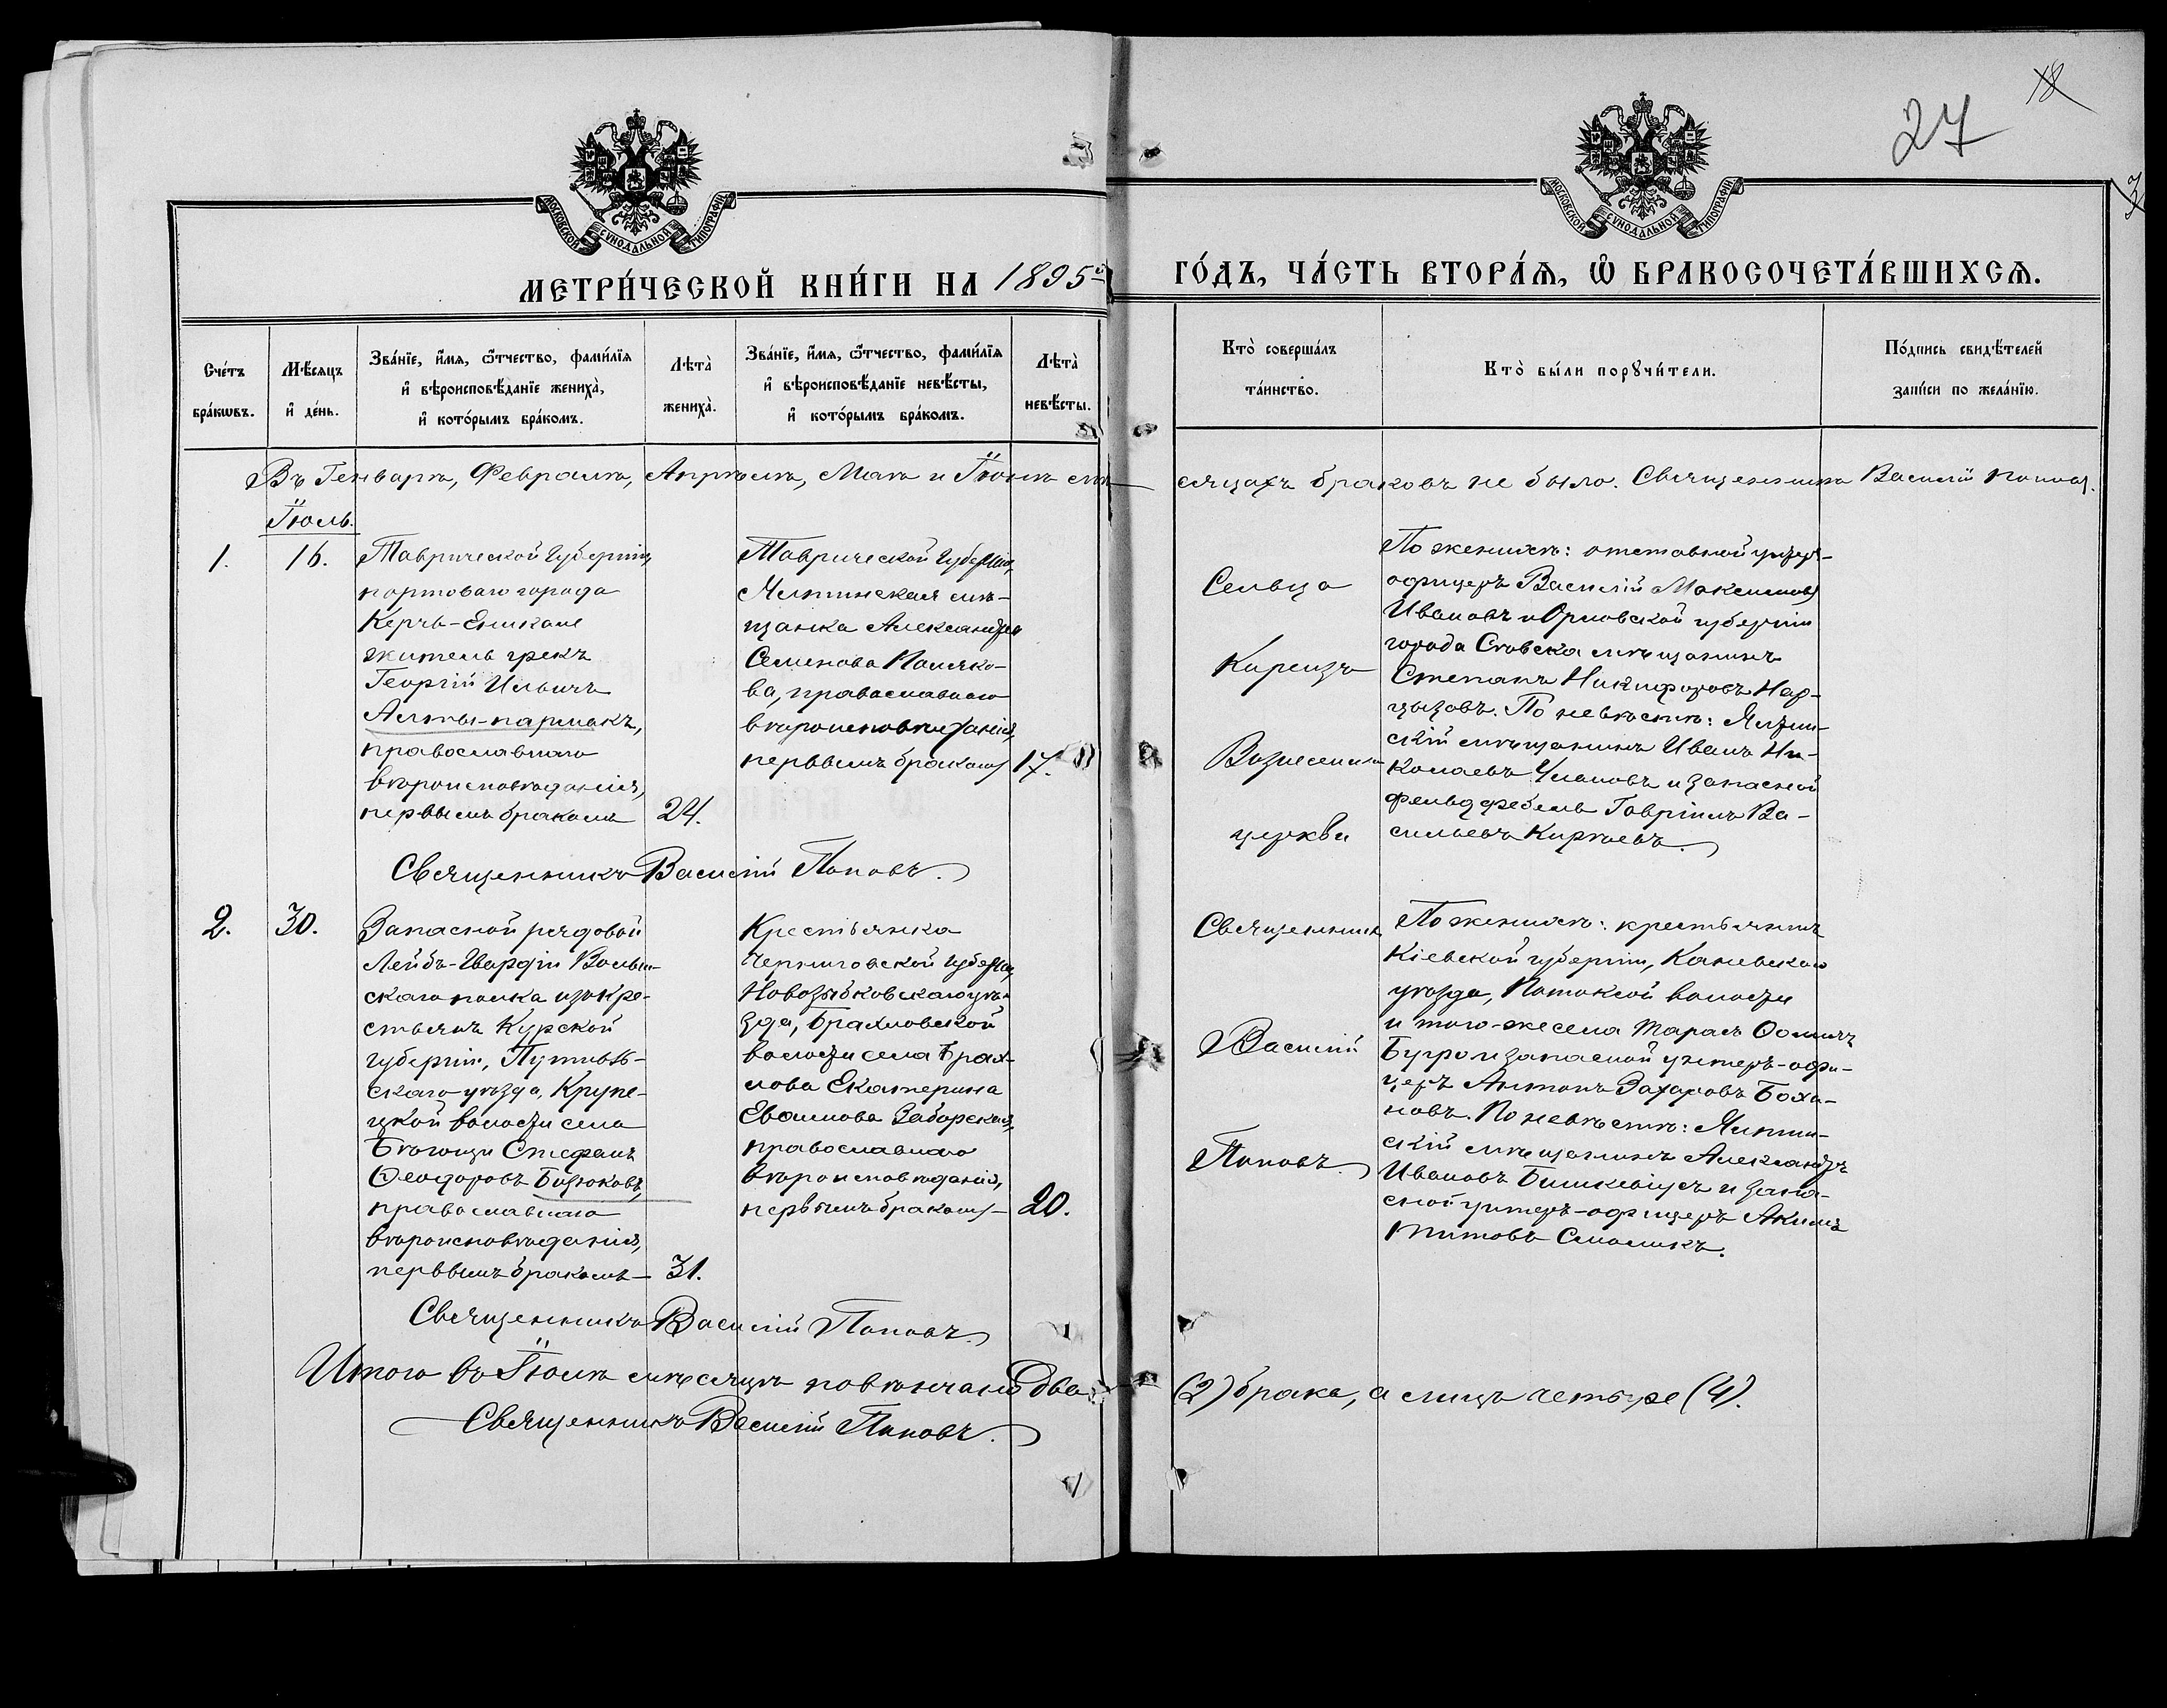 27
18
3
МОСКОВСКОЙ СѴНОДАЛЬНОЙ ТИПОГРАФІИ
МОСКОВСКОЙ СѴНОДАЛЬНОЙ ТИПОГРАФІИ
МЕТРИ́ЧЕСКОЙ КНИ́ГИ НА 1895й ГО́ДЪ, ЧА́СТЬ ВТОРА́Я, Ѽ БРАКОСОЧЕТА́ВШИХСЯ.
Сче́тъ
бра́кѡвъ.
Мѣ́сяцъ
и҆ де́нь.
Зва́нїе, и҆́мя, ѻ҆́тчество, фами́лїя
и҆ вѣроисповѣ́данїе жениха̀,
и҆ кото́рымъ бра́комъ.
Лѣта̀
жениха̀.
Зва́нїе, и҆́мя, ѻ҆́тчество, фами́лїя
и҆ вѣроисповѣ́данїе невѣ́сты,
и҆ кото́рымъ бра́комъ.
Лѣта̀
невѣ́сты.
Кто̀ соверша́лъ
та́инство.
Кто̀ бы́ли порꙋчи́тели.
По́дпись свидѣ́телей
за́писи по жела́нїю.
Въ Генварѣ, Февралѣ, Апрѣлѣ, Маѣ и Іюнѣ мѣсяцахъ браковъ не было. Священникъ Василій Поповъ.
Іюль.
1.
16.
Таврической Губерніи,
портоваго города
Керчь-Еникале
житель грекъ
Георгій Ильичъ
Алты-пармакъ,
православнаго
вѣроисповѣданія,
первымъ бракомъ
24.
Таврической Губерніи,
Ялтинская мѣ-
щанка Александра
Семенова Поляко-
ва, православнаго
вѣроисповѣданія,
первымъ бракомъ
17.
Сельца
Кореизъ
Вознесенской
церкви
По женихѣ: отставной унтеръ-
офицеръ Василій Максимовъ
Ивановъ и Орловской губерніи
города Сѣвска мѣщанинъ
Степанъ Никифоровъ Нар-
цызовъ. По невѣстѣ: Ялтин-
скій мѣщанинъ Иванъ Ни-
колаевъ Улановъ и запасной
фельдфебель Гавріилъ Ва-
сильевъ Киреевъ.
Священникъ Василій Поповъ.
2.
30.
Запасной рядовой
Лейбъ-Гвардіи Волын-
скаго полка изъ кре-
стьянъ Курской
губерніи, Путивль-
скаго уѣзда, Крупе-
цкой волости села
Стефанъ
Ѳеодоровъ Бизюковъ,
православнаго
вѣроисповѣданія,
первымъ бракомъ —
31.
Крестьянка
Черниговской губерніи,
Новозыбковскаго уѣ-
зда, Брахловской
волости села Брах-
лова Екатерина
Евфимова Заборская,
православнаго
вѣроисповѣданія,
первымъ бракомъ —
20.
Священникъ
Василій
Поповъ.
По женихѣ: крестьянинъ
Кіевской губерніи, Каневскаго
уѣзда, Потокской волости
и того-же села Тарасъ
и запасной унтеръ-офи-
церъ Антонъ Захаровъ Боха-
новъ. По невѣстѣ: Ялтин-
скій мѣщанинъ Александръ
Ивановъ и запа-
сной унтеръ-офицеръ Акимъ
Титовъ Смоликъ.
Священникъ Василій Поповъ.
Итого въ Іюлѣ мѣсяцѣ повѣнчано два (2) брака, а лицъ четыре (4).
Священникъ Василій Поповъ.